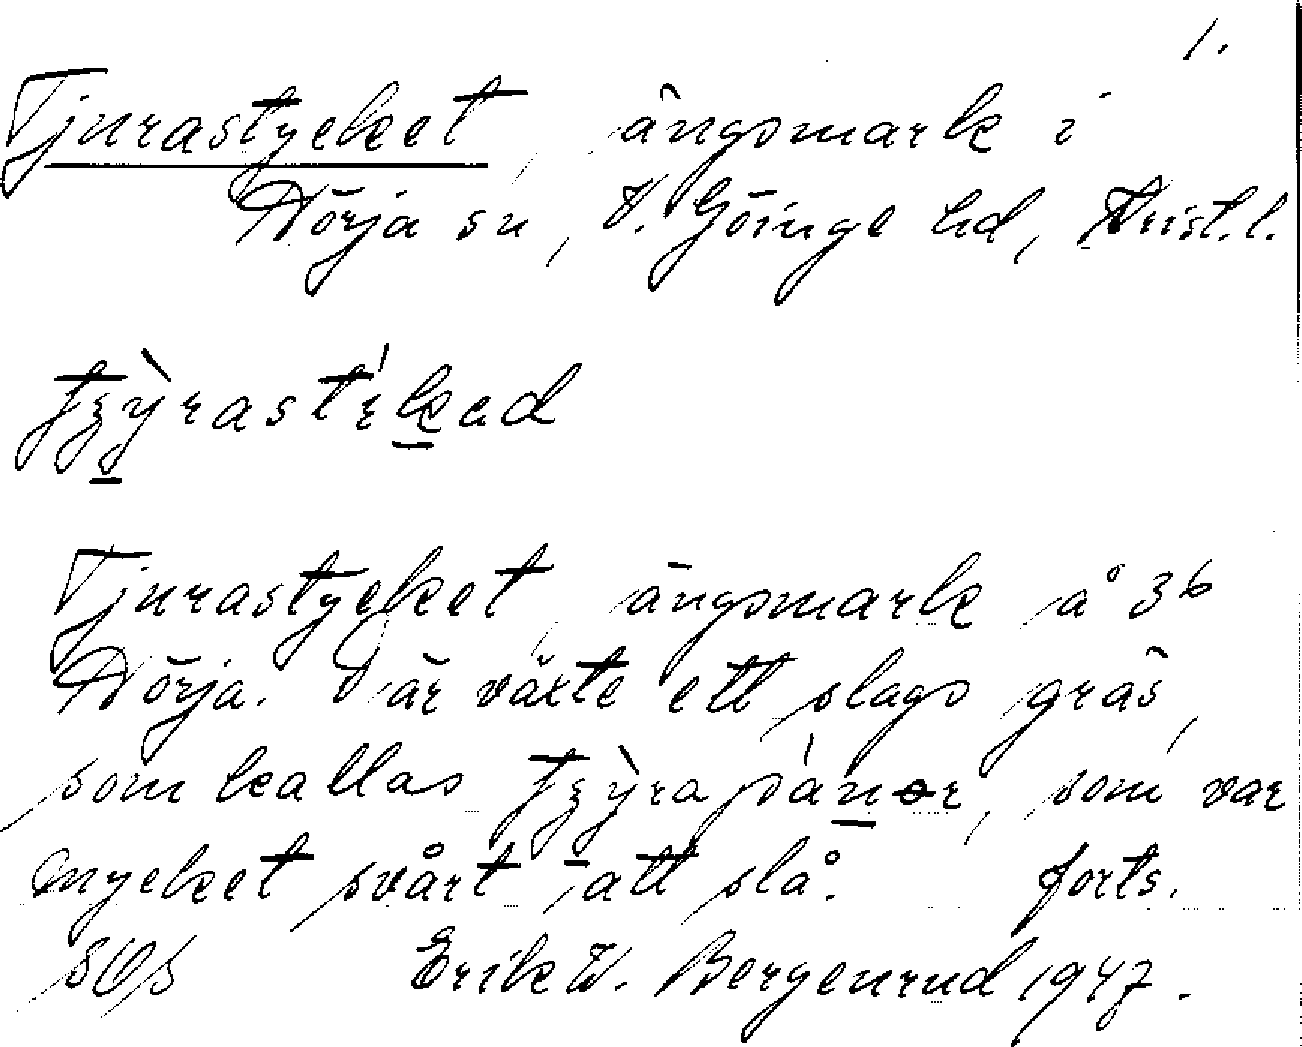 1.
Tjurastycket, ängsmark i
Nörja sn, V. Göinge hd, Krist.l.
Tjurastycket, ängsmark å 3⁶
Nörja. Där växte ett slags gräs,
som kallas som var
mycket svårt att slå. forts.
Erik W. Bergenrud 1947.